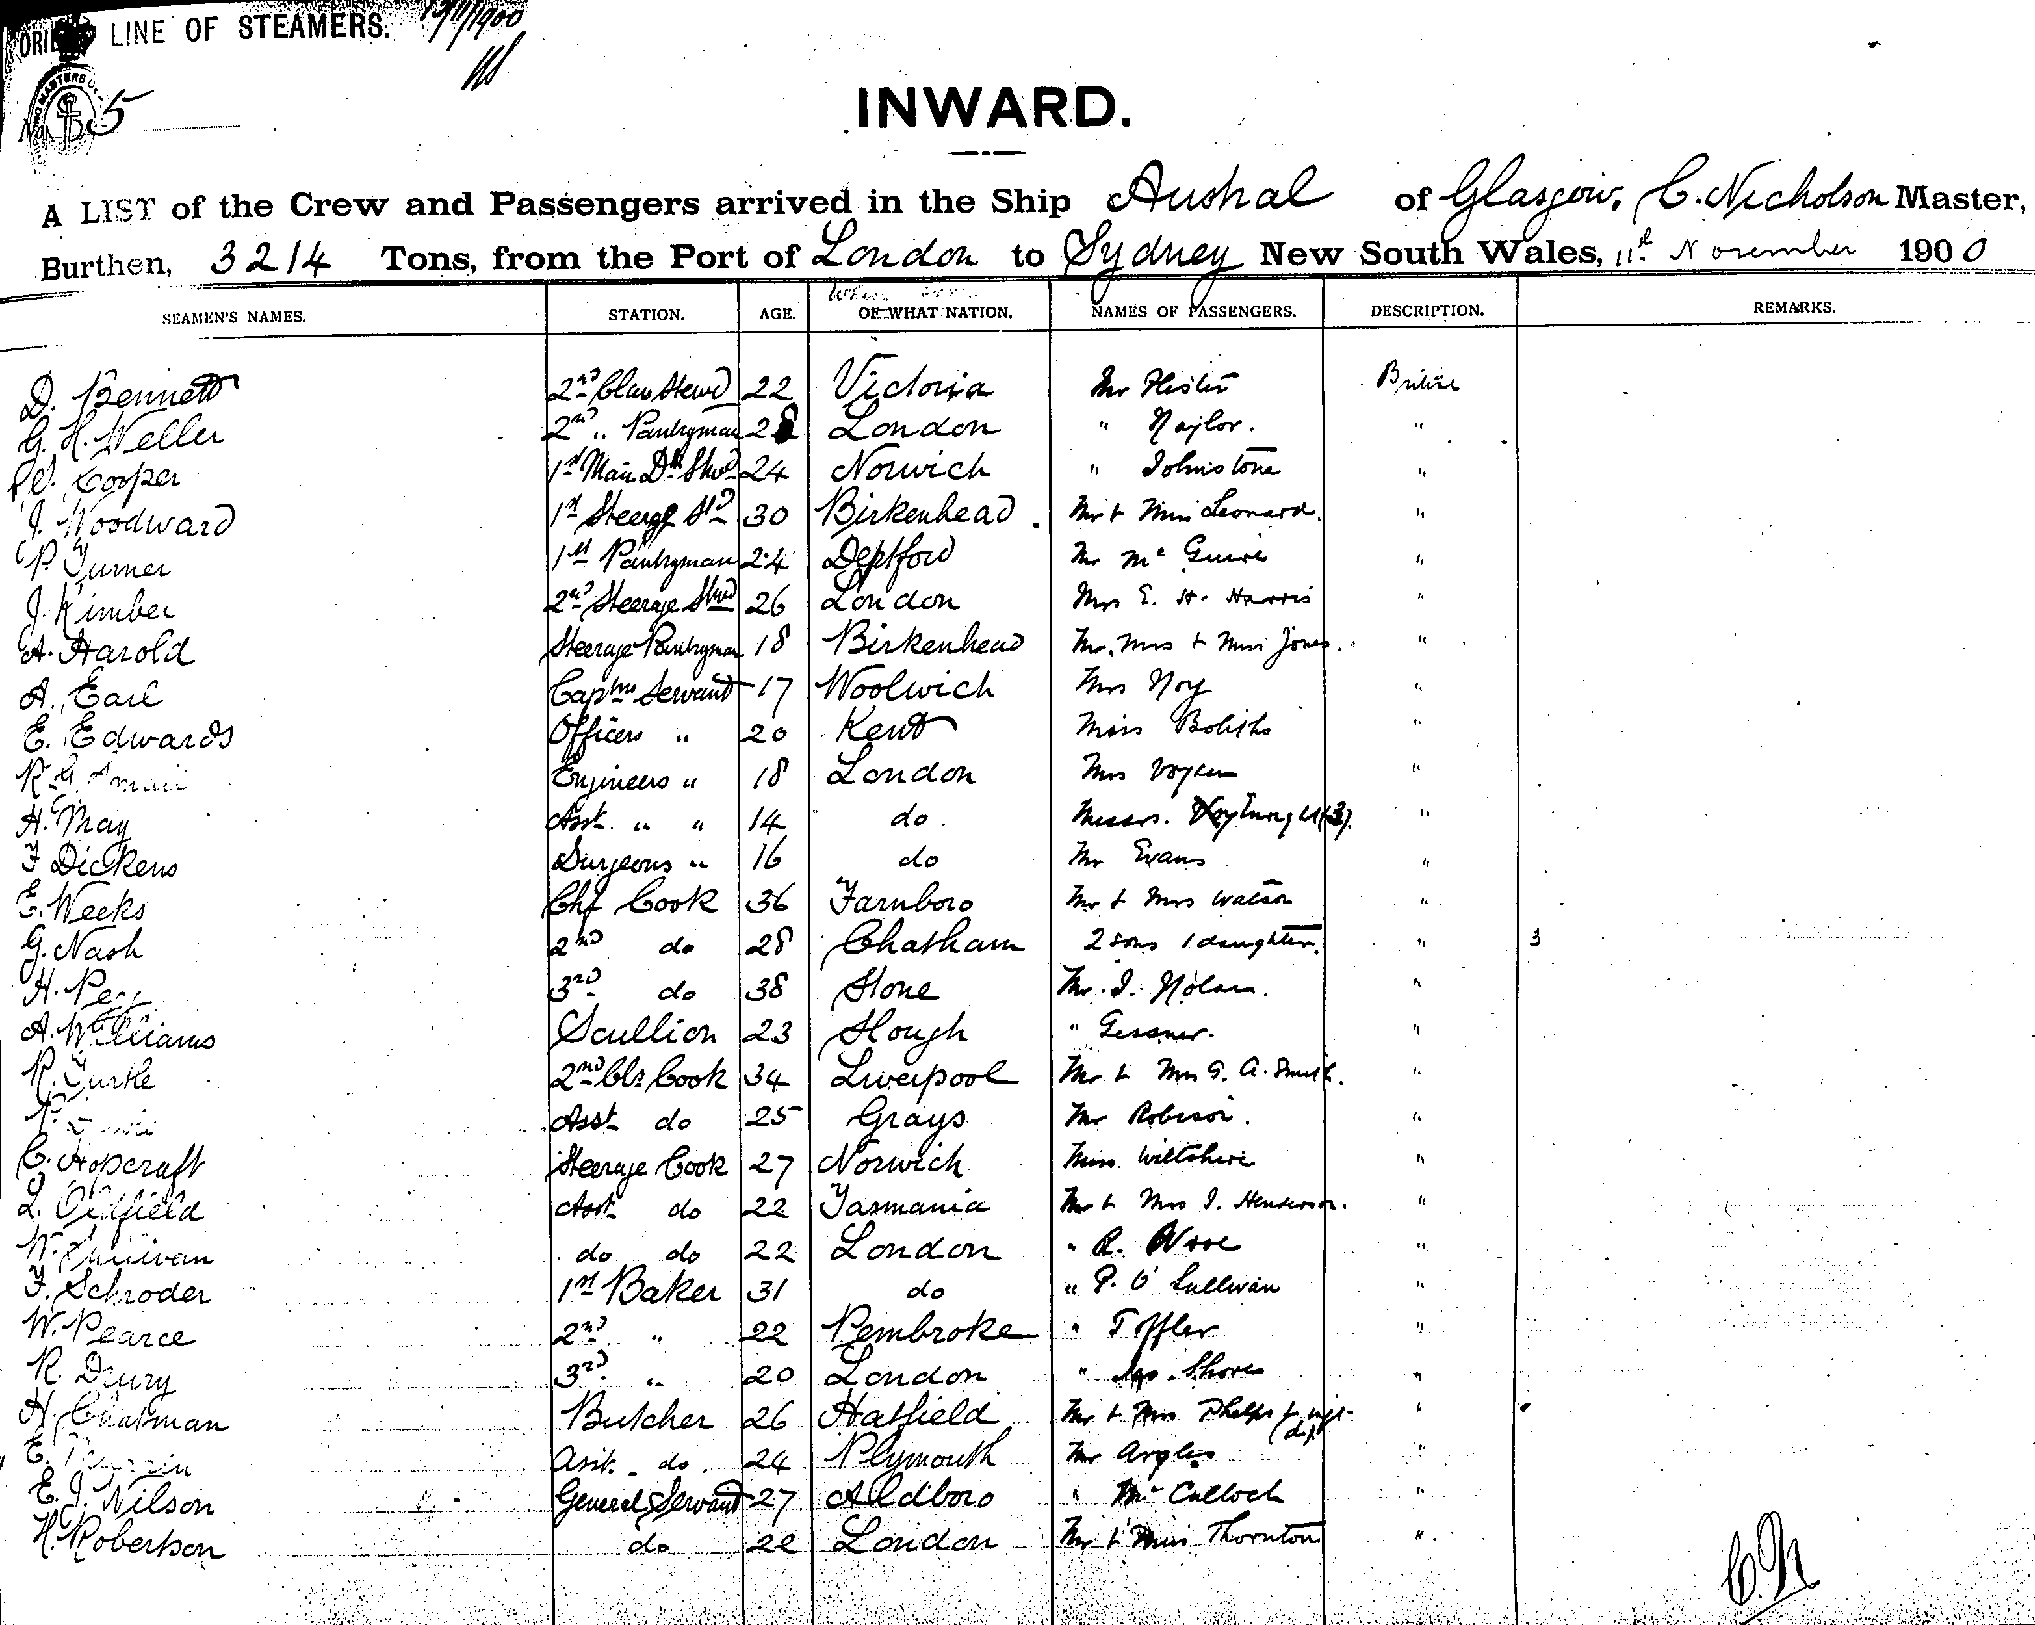 ORIENT LINE OF STEAMERS. 12/11/1900
No. 5
INWARD.
A LIST of the Crew and Passengers arrived in the Ship Austral of Glasgow, C. Nicholson Master,
Burthen, 3214 Tons, from the Port of London to Sydney New South Wales, 11th November 1900
SEAMEN'S NAMES. STATION. AGE. OF WHAT NATION. NAMES OF PASSENGERS. DESCRIPTION. REMARKS.
D. Bennett 2nd Class Stewd 22 Victoria Mr British
G. H. Weller 2nd " Pantryman 28 London " Naylor. "
W. Cooper 1st Main Dk Stwd 24 Norwich " Johnstone "
J. Woodward 1st Steerge Std 30 Birkenhead. Mr & Miss Leonard. "
P. Turner 1st Pantryman 24 Deptford Mr McGuire "
J. Kimber 2nd Steerage Stwd 26 London Mrs E. H. Harris "
A. Harold Steerage Pantryman 18 Birkenhead Mr, Mrs & Miss Jones. "
A. Earl Captns Servant 17 Woolwich Mrs Noy "
E. Edwards Officers " 20 Kent Miss Bolitho "
R. G. Engineers " 18 London Mrs "
H. May Asst. " " 14 do. Messrs. (3). "
F. Dickens Surgeons " 16 do Mr Evans "
E. Weeks Chf Cook 36 Farnboro Mr & Mrs Watson "
G. Nash 2nd do 28 Chatham 2 sons 1 daughter. " 3
H. 3rd do 38 Stone Mr. J. Nolan. "
A. Williams Scullion 23 Slough " Gessner. "
R. Turtle 2nd Cls Cook 34 Liverpool Mr & Mrs G. A. Smith. "
Asst do 25 Grays Mr Robison. "
C. Hopcraft Steerage Cook 27 Norwich Miss Wiltshire "
L. Oldfield Asst. do 22 Tasmania Mr & Mrs J. Henderson. "
W. Sullivan do do 22 London " R. "
F. Schroder 1st Baker 31 do " P. O'Sullivan "
W. Pearce 2nd " 22 Pembroke " Toffler "
R. Drury 3rd " 20 London " Jas. Shores "
H. Chatman Butcher 26 Hatfield Mr & Mrs Phelps & "
E. Asst. do. 24 Plymouth Mr Argles "
E. J. Nilson General Servant 27 Aldboro " McCulloch "
H. Robertson do 22 London Mr & Miss Thornton "
C.N.